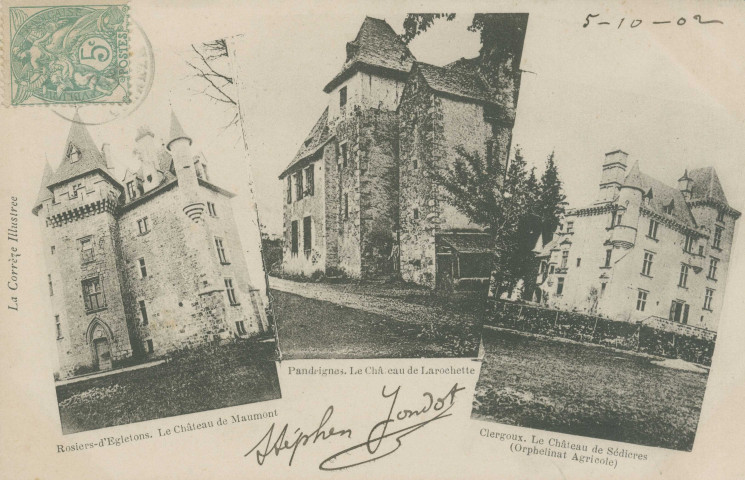 5-10-02
5c
POSTES
La Corrèze Illustrée
Pandrignes. Le Châ.eau de Larochette
Rosiers-d'Egletons. Le Château de Maumont
Clergoux. Le Château de Sédières
(Orphelinat Agricole)
Stéphen Jondot